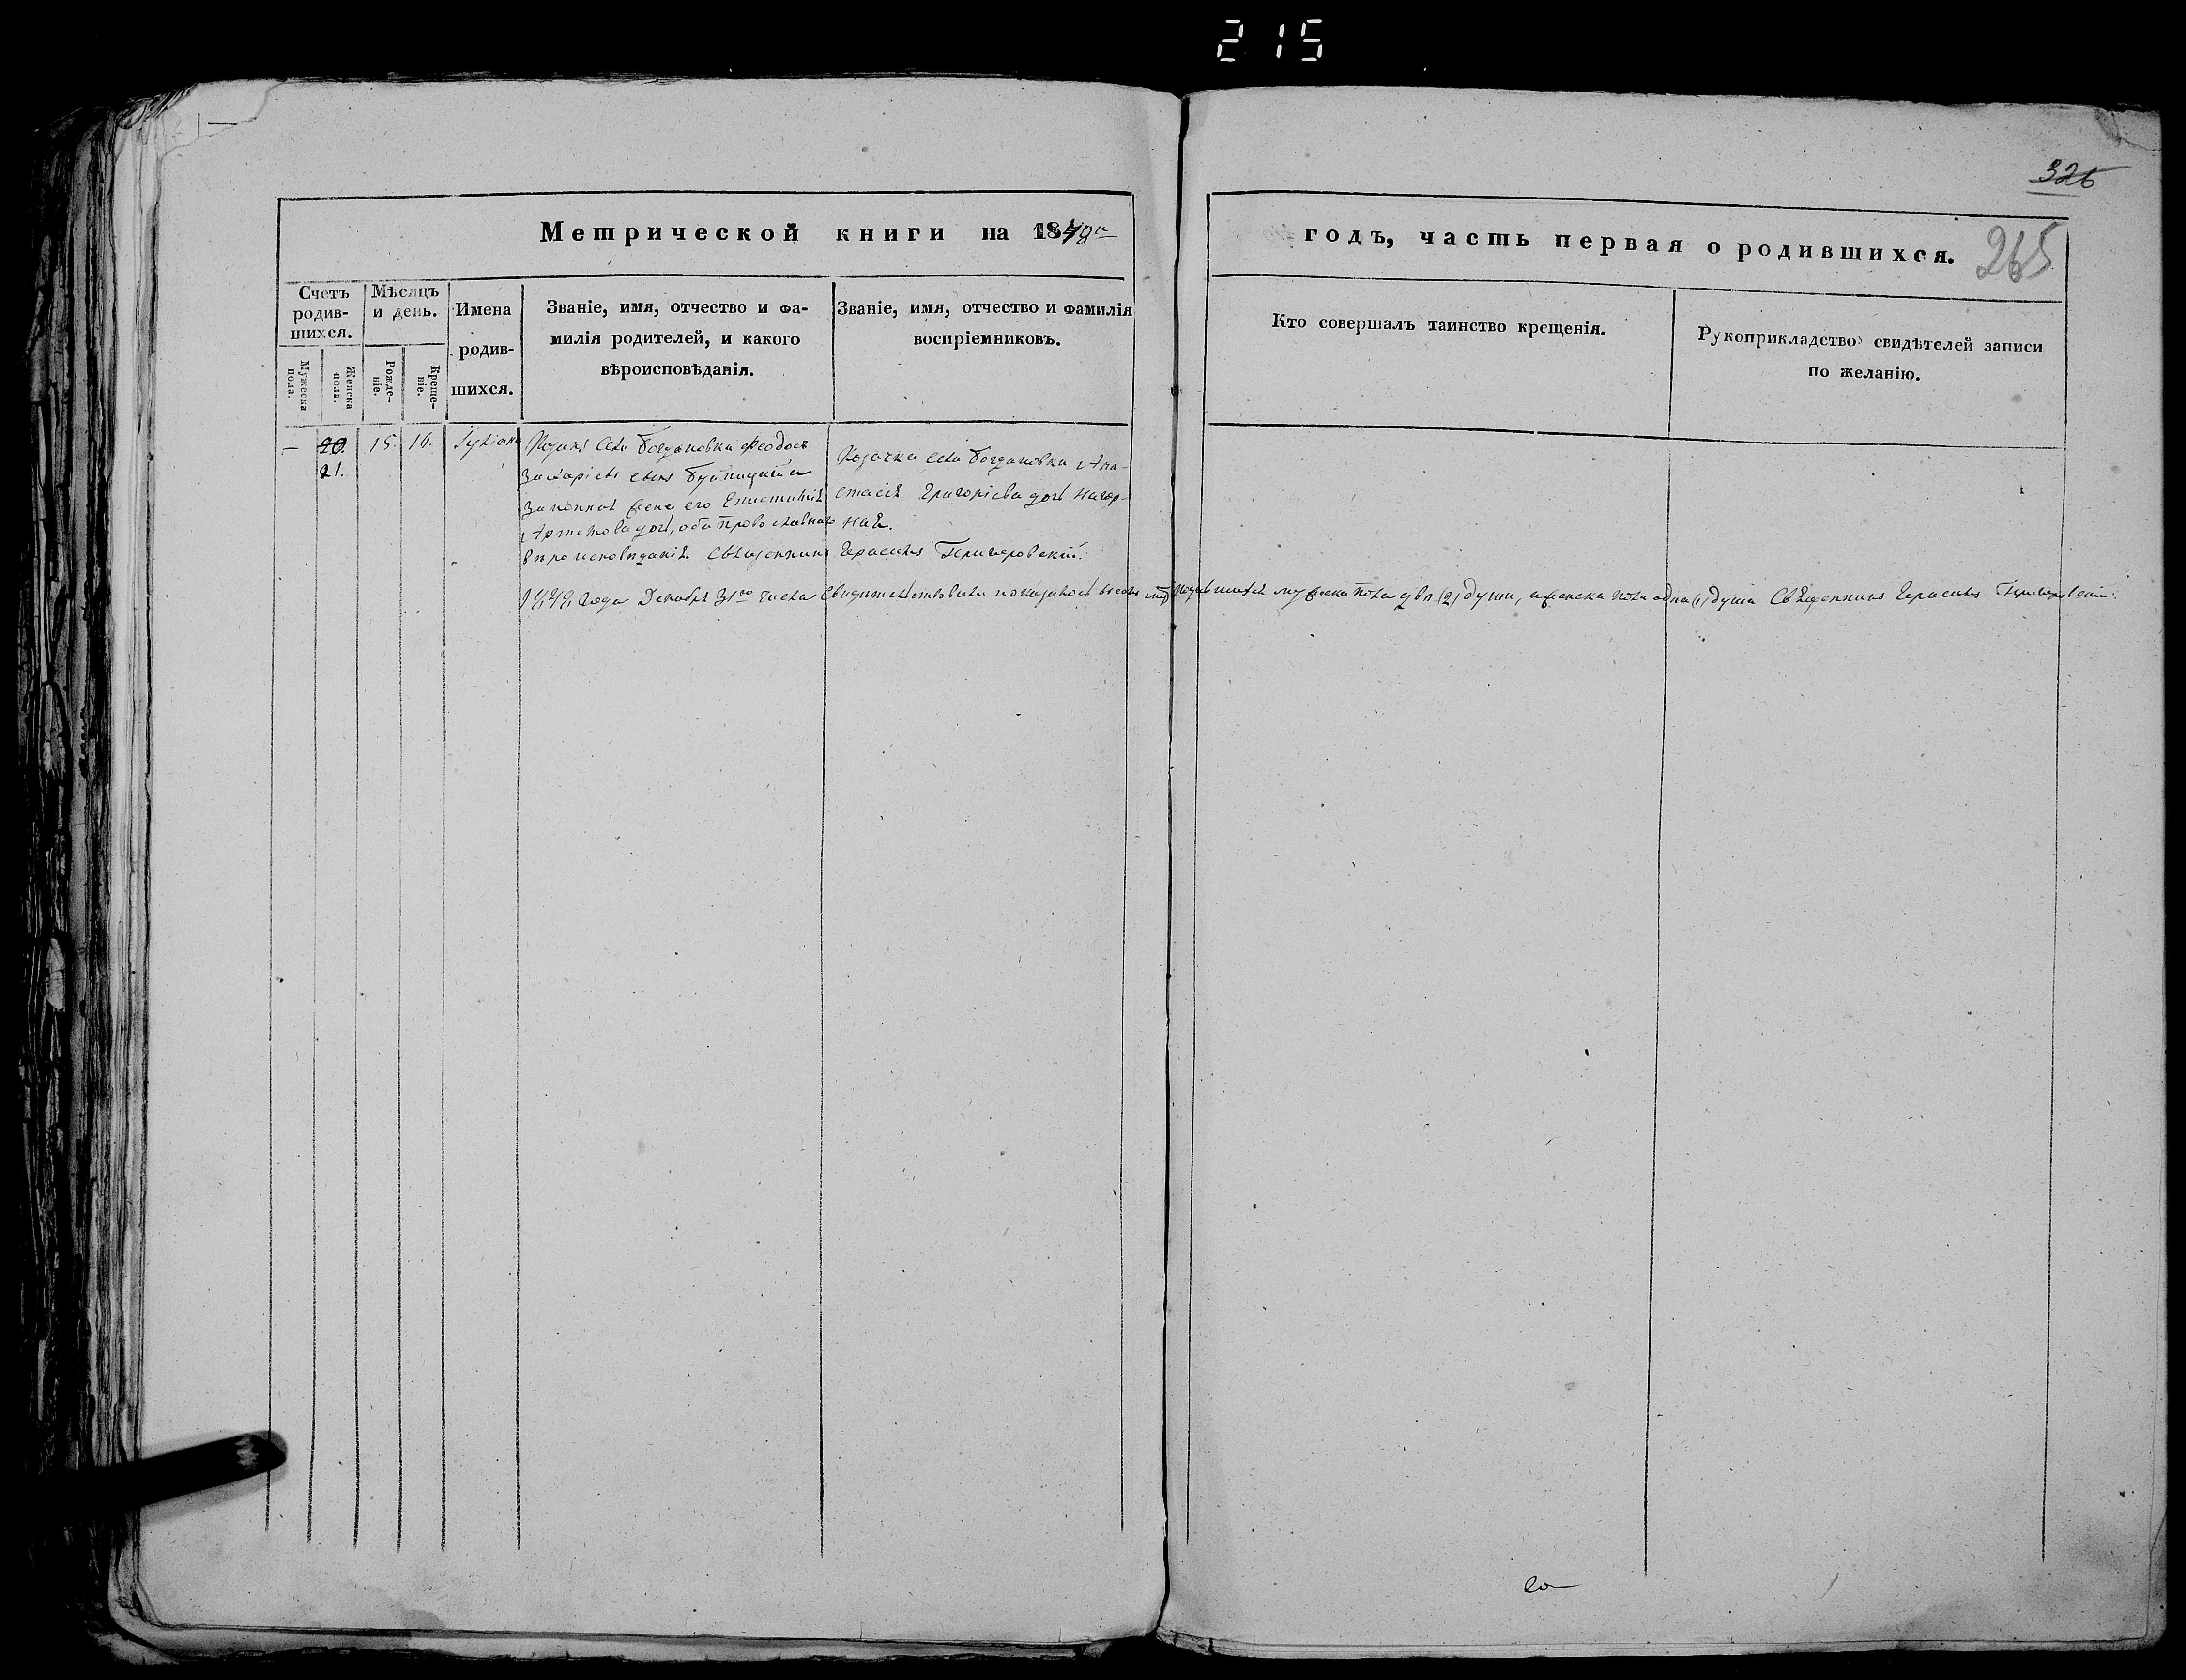 215
326
265
Метрической книги на 1849й
годъ, часть первая о родившихся.
Счетъ родив-
шихся.
Мужеска пола.
Женска пола.
Мѣсяцъ
и день.
Рожде-
ніе.
Креще-
ніе.
Имена
родив-
шихся.
Званіе, имя, отчество и фа-
милія родителей, и какого
вѣроисповѣданія.
Званіе, имя, отчество и фамилія
воспріемниковъ.
Кто совершалъ таинство крещенія.
Рукоприкладство свидѣтелей записи
по желанію.
— 20. 15. 16. Іуліана
21.
Козакъ села Богдановки Феодосъ
Захаріевъ сынъ
законная жена его Епистимія
Артемова дочь, оба православнаго
вѣроисповѣданія. Священникъ Герасимъ
Козачка села Богдановки Ана-
стасія Григоріева дочь Нагор-
ная.
года Декабря 31го числа свидѣтельствовали показалось родившихся мужеска пола двѣ (2) души, а женска пола одна (1) душа Священникъ Герасимъ